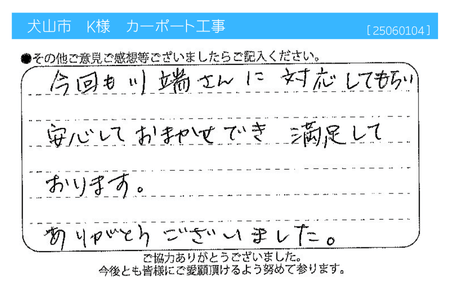 犬山市　K様　カーポート工事 [25060104]
●その他ご意見ご感想等ございましたらご記入ください。
今回も川端さんに 対応してもらい
安心しておまかせでき 満足して
おります。
ありがとうございました。
ご協力ありがとうございました。
今後とも皆様にご愛顧頂けるよう努めて参ります。